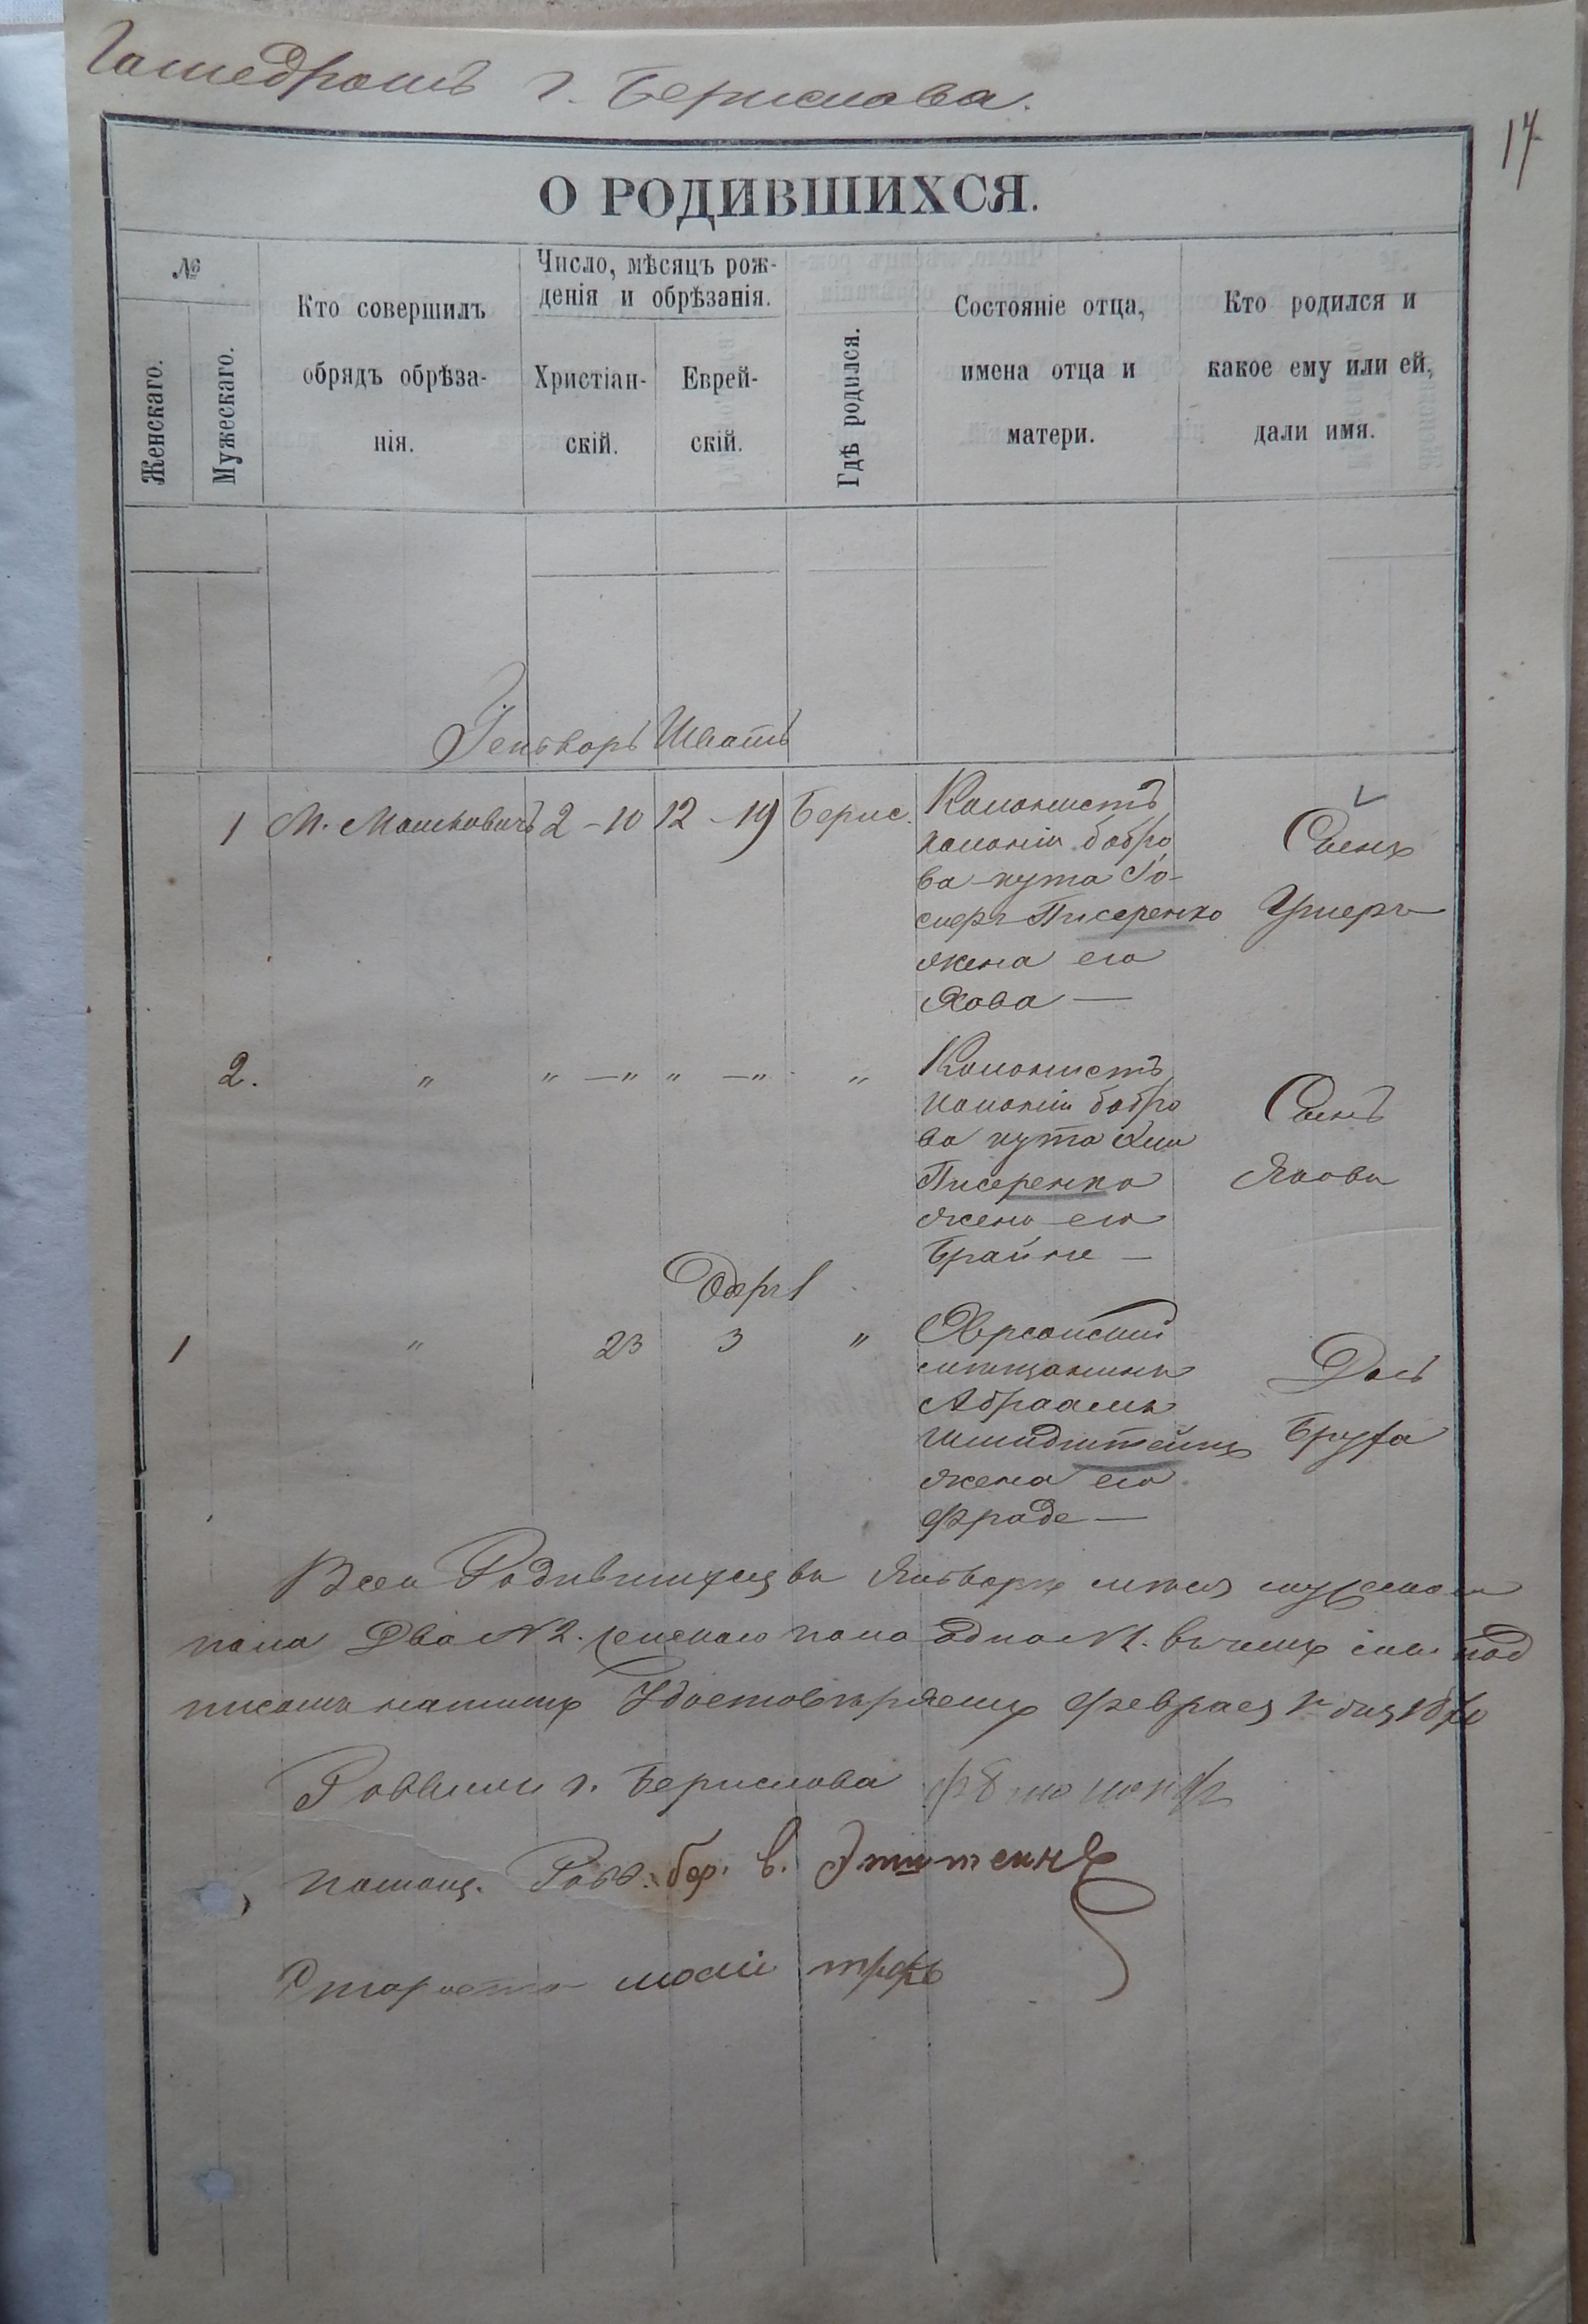 г. Берислова.
17
О РОДИВШИХСЯ.
№
Женскаго.
Мужескаго.
Кто совершилъ
обрядъ обрѣза-
нія.
Число, мѣсяцъ рож-
денія и обрѣзанія.
Христіан-
скій.
Еврей-
скій.
Гдѣ родился.
Состояніе отца,
имена отца и
матери.
Кто родился и
какое ему или ей,
дали имя.
Генваръ Шватъ
1 М. Машковичъ 2 – 10 12 – 19 Берис.
Колонистъ
колоніи бобро
ва кута Іо-
сифъ Писаренко
жена его
Хова —
Сынъ
Ушеръ
2. " " — " " — " "
Колонистъ
колоніи бобро
ва кута
Писаренко
жена его
Брайне —
Сынъ
Яковъ
Одеръ 1
1 " 23 3 "
Херсонскій
мѣщанинъ
Абраамъ
Шмидштейнъ
жена его
Фраде —
Дочь
Бруха
Всего Родившихся въ Январѣ мѣсяц мужскаго
пола Два N 2. женскаго пола одна N 1. въ чемъ под
писомъ нашимъ Удостовѣряемъ февраля 1 дня 1870
Раввинъ г. Берислова
помощ. Равв. бер. в.
Староста